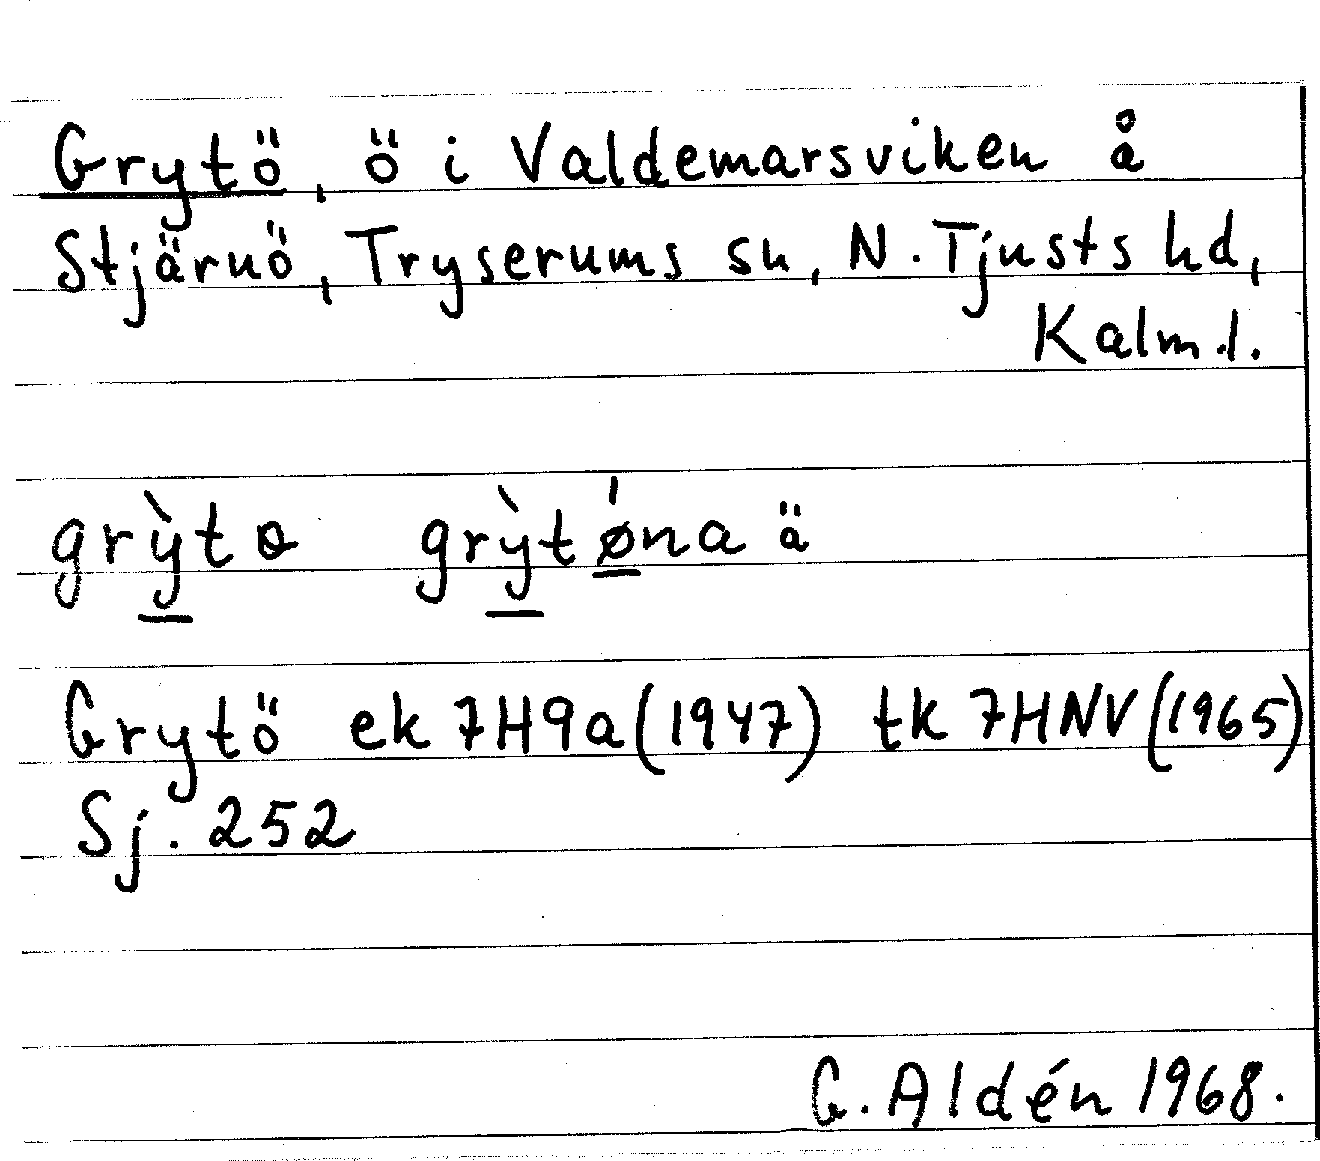 Grytö, ö i Valdemarsviken å
Stjärnö, Tryserums sn, N. Tjusts hd,
Kalm.l.
grỳtɵ grỳtǿna ä
Grytö ek 7H9a(1947) tk 7HNV(1965)
Sj. 252
G. Aldén 1968.